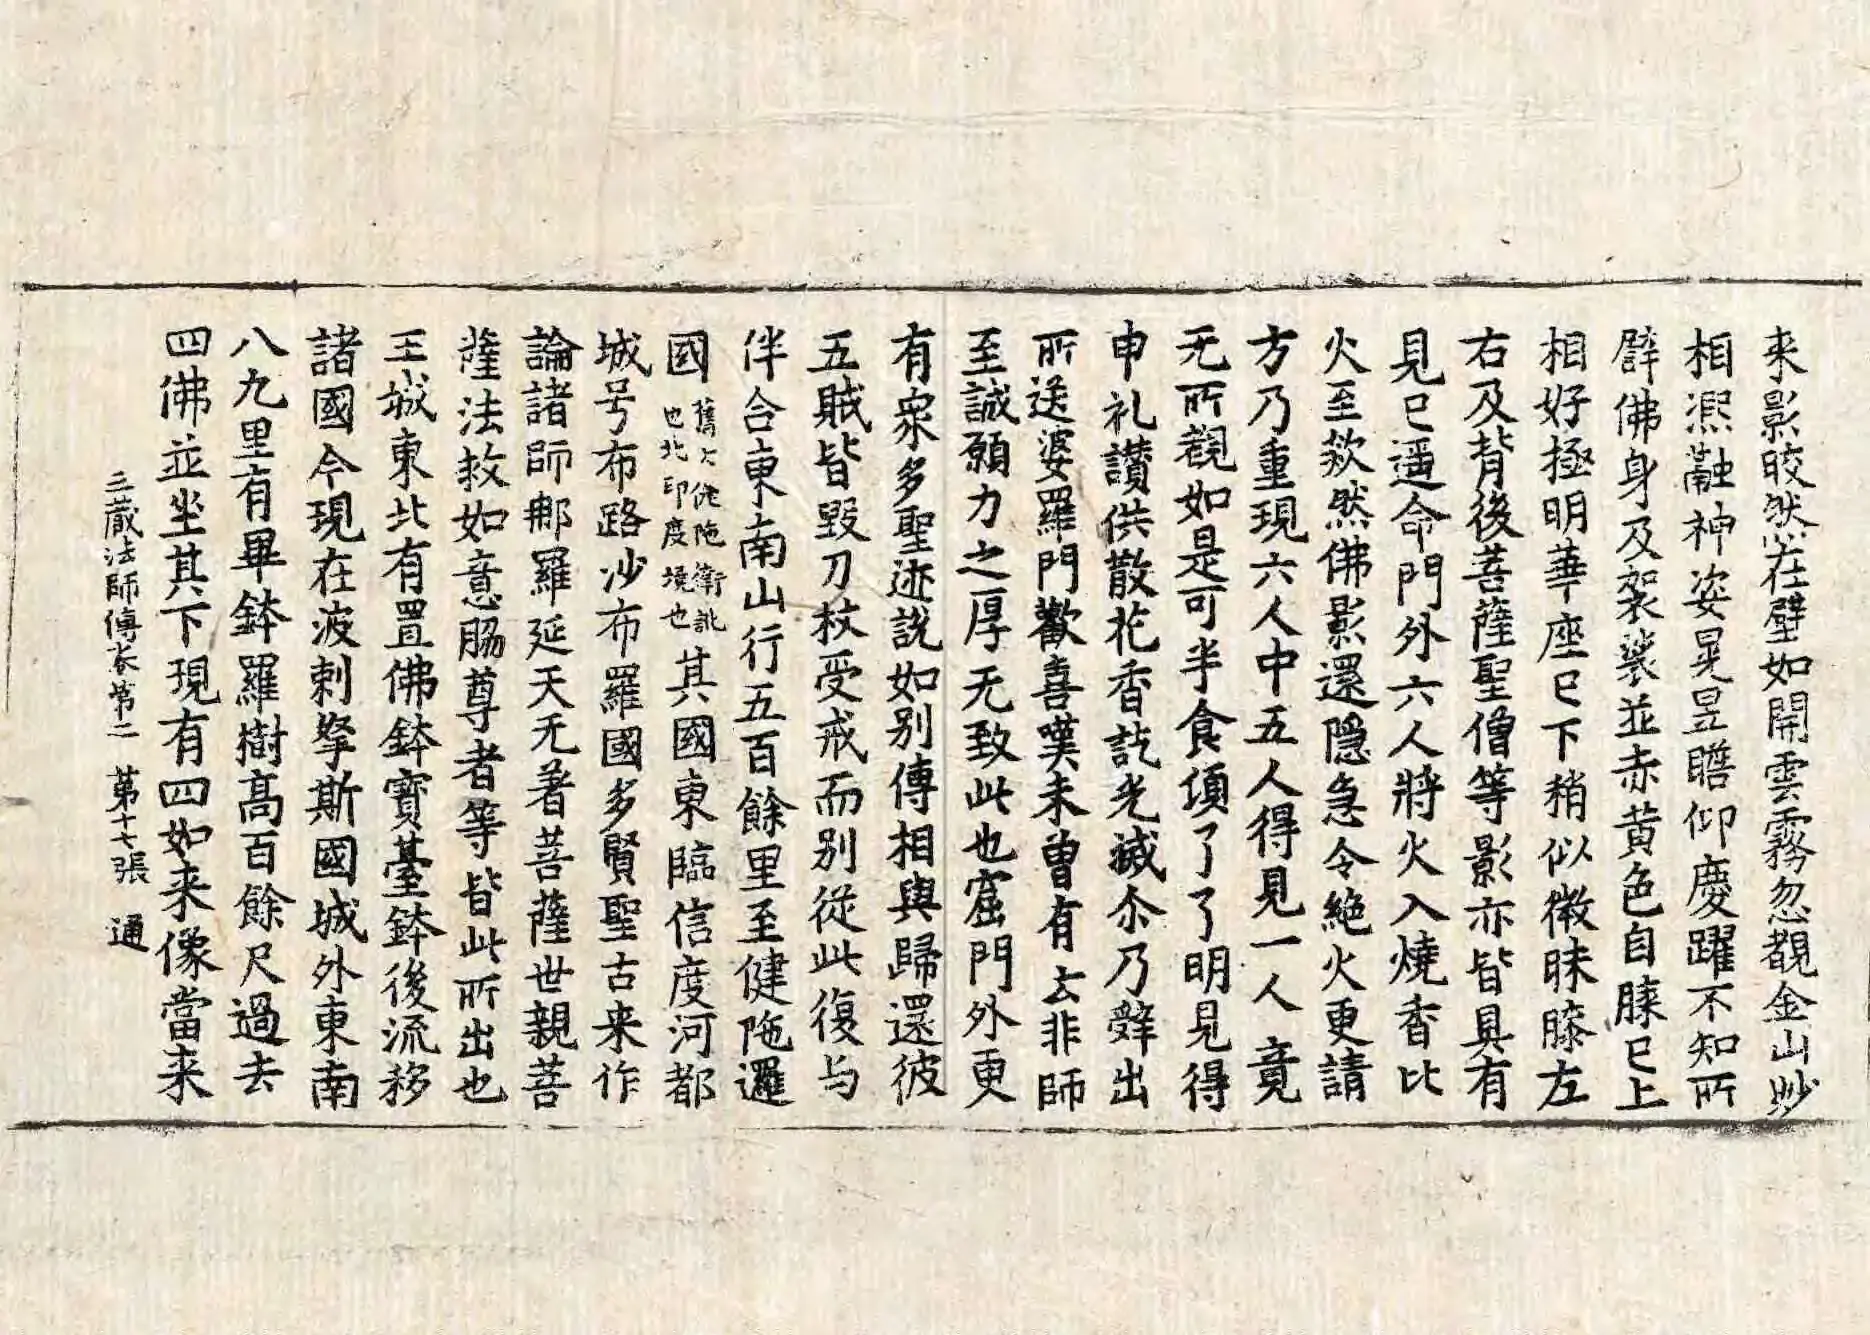 来影皎然在壁如開雲霧忽覩金山妙
相熈融神姿晃昱瞻仰慶躍不知所
譬佛身及袈裟並赤黄色自膝已上
相好極明華座已下稍似微昧膝左
右及背後菩薩聖僧等影亦皆具有
見已遥命門外六人將火入燒香比
火至欻然佛影還隱急令絶火更請
方乃重現六人中五人得見一人竟
无所覩如是可半食頃了了明見得
申礼讃供散花香訖光滅尒乃辤出
所送婆羅門歡喜嘆未曾有云非師
至誠願力之厚无致此也窟門外更
有衆多聖迹説如别傳相與歸還彼
五賊皆毀刀杖受戒而别從此復与
伴合東南山行五百餘里至健陁邏
國舊云健陁衛訛也北印度境也其國東臨信度河都
城号布路沙布羅國多賢聖古来作
論諸師郍羅延天无著菩薩世親菩
薩法救如意脇尊者等皆此所出也
王城東北有置佛鉢寶臺鉢後流移
諸國今現在波剌拏斯國城外東南
八九里有畢鉢羅樹高百餘尺過去
四佛並坐其下現有四如来像當来
三藏法師傳卷第二 第十七張 通